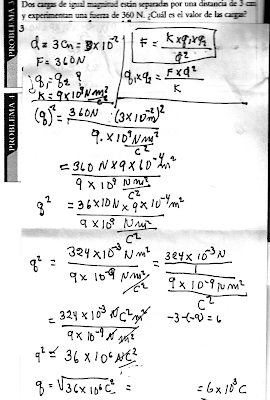 Dos cargas de igual magnitud están separadas por una distancia de 3 cm
y experimentan una fuerza de 360 N. ¿Cuál es el valor de las cargas?
3
PROBLEMA 3
d = 3cm = 3x10^-2
F = 360N
F = K x q1 x q2 / d^2
¿q1 = q2 ?
K = 9x10^9 Nm^2/C^2
q1 x q2 = F x d^2 / K
PROBLEMA 4
(q)^2 = 360N · (3x10^-2 m)^2 / 9 · x10^9 Nm^2/C^2
= 360 N x 9 x 10^-4 m^2 / 9 x 10^9 Nm^2/C^2
q^2 = 36x10N x 9 x 10^-4 m^2 / 9 x 10^9 Nm^2/C^2
q^2 = 324 x 10^-3 Nm^2 / 9x 10^-9 Nm^2/C^2 = 324 x 10^-3 N / 1 / 9 x 10^-9 Nm^2 / C^2
= 324 x 10^-3 NC^2m^2 / 9x 10^-9 Nm^2
-3-(-9) = 6
q^2 = 36 x 10^6 NC^2
q = √36x10^6 C^2 = = 6x10^3 C